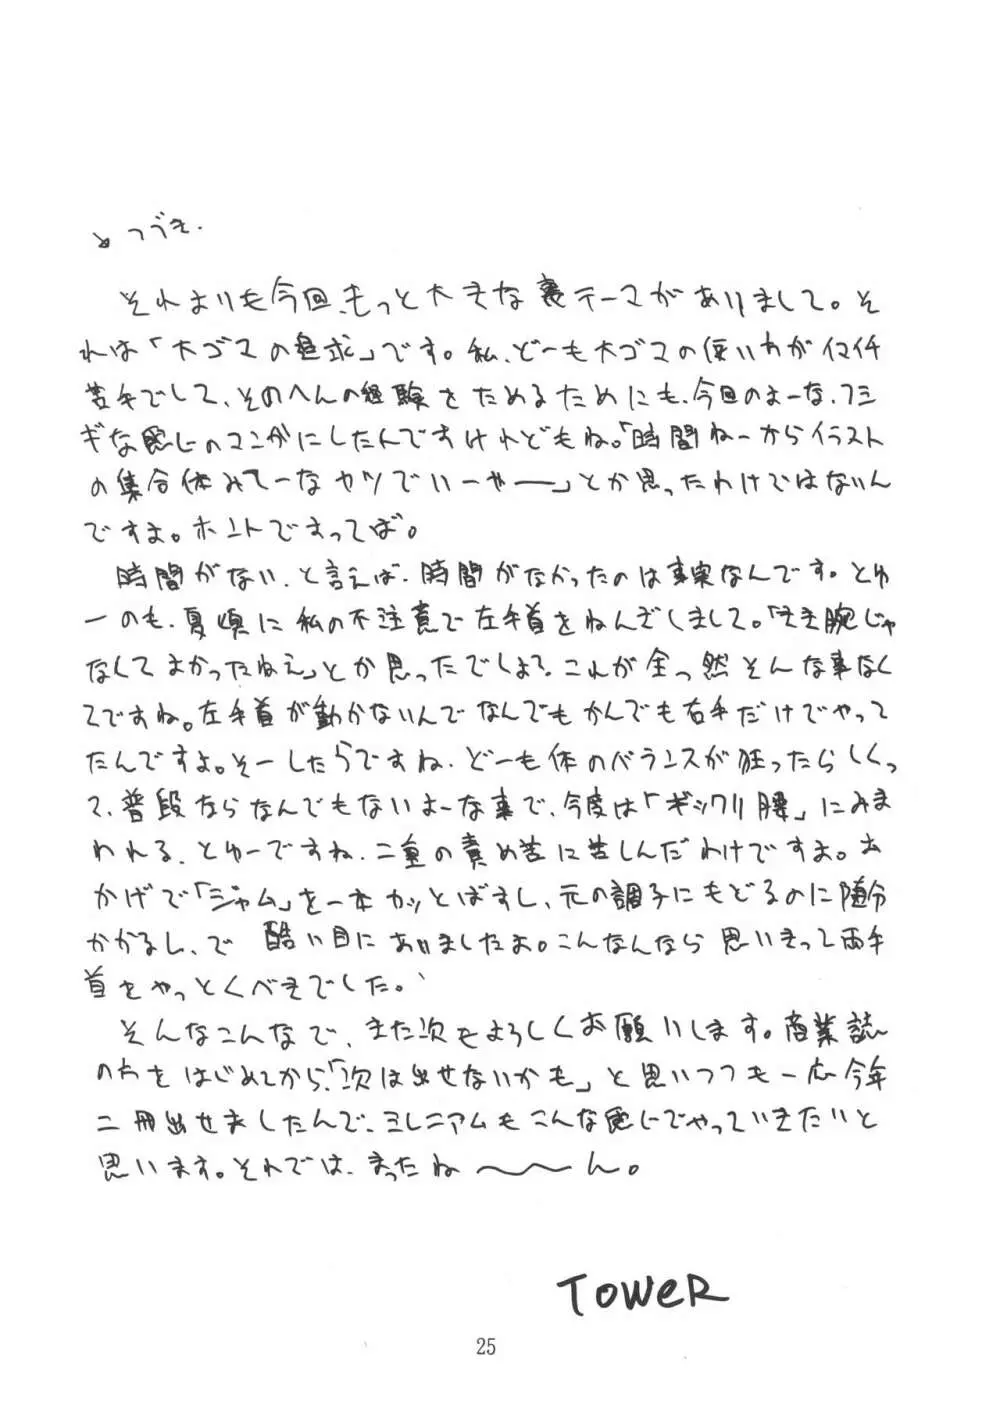 つづき.
それよりも今回、もっと大きな裏テーマがありまして。そ
れは「大ゴマの追求」です。私、どーも大ゴマの使い方がイマイチ
苦手でして、そのへんの経験をためるためにも、今回のよーな、フシ
ギな感じのマンガにしたんですけれどもね。「時間ねーからイラスト
の集合体みてーなヤツでいーやー」とか思ったわけではないん
ですよ。ホントですってば。
時間がない、と言えば、時間がなかったのは事実なんです。とゆ
ーのも、夏頃に私の不注意で左手首をねんざしまして。「きき腕じゃ
なくてよかったねえ」とか思ったでしょ？これが全っ然そんな事なく
てですね。左手首が動かないんでなんでもかんでも右手だけでやって
たんですよ。そーしたらですね、どーも体のバランスが狂ったらしくっ
て、普段ならなんでもないよーな事で、今度は「ギックリ腰」にみま
われる、とゆーですね、二重の責め苦に苦しんだわけですよ。お
かげで「ジャム」を一本カッとばすし、元の調子にもどるのに随分
かかるし、で酷い目にありましたよ。こんなんなら思いきって両手
首をやっとくべきでした。
そんなこんなで、また次もよろしくお願いします。商業誌
の方をはじめてから、「次は出せないかも」と思いつつも一応今年
二冊出せましたんで、ミレニアムもこんな感じでやっていきたいと
思います。それでは、まったね〜〜ん。
TOWER
25